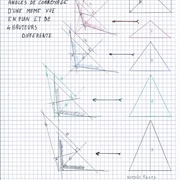 ANGLES DE CORROYAGE
D'UNE MEME VUE
EN PLAN ET DE
4 HAUTEURS
DIFFERENTE